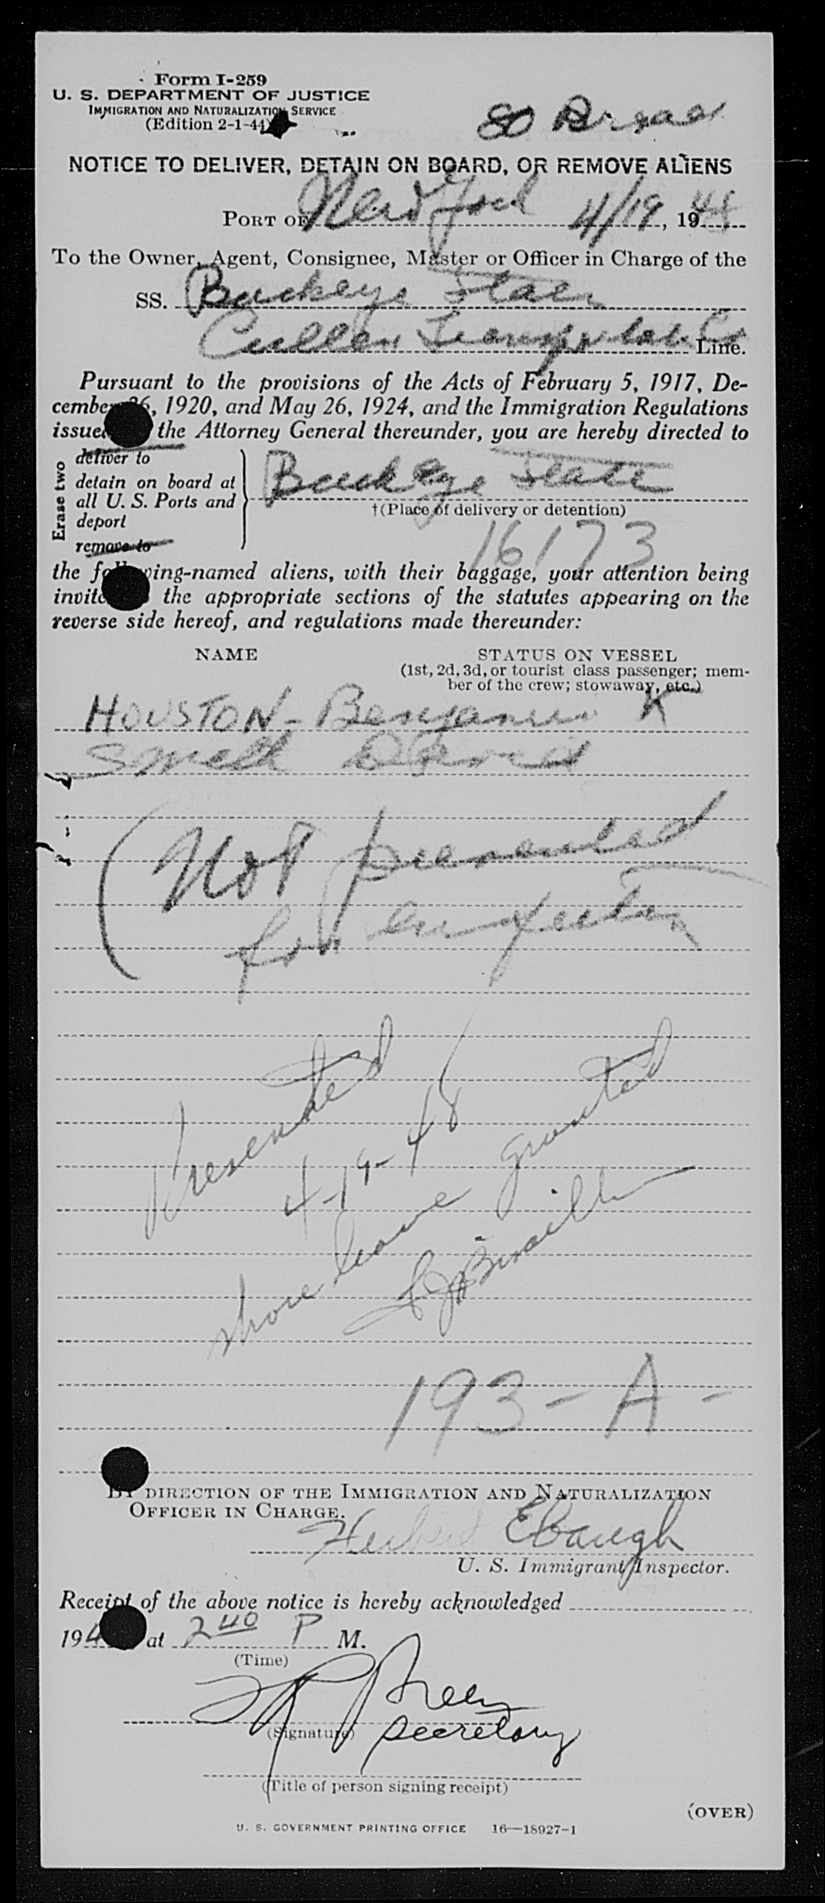 Form I-259
U. S. DEPARTMENT OF JUSTICE
IMMIGRATION AND NATURALIZATION SERVICE
(Edition 2-1-44)
80 Broad
NOTICE TO DELIVER, DETAIN ON BOARD, OR REMOVE ALIENS
PORT OF New York 4/19, 1948
To the Owner, Agent, Consignee, Master or Officer in Charge of the
SS. Buckeye State
Cullen Line.
Pursuant to the provisions of the Acts of February 5, 1917, De-
cember 26, 1920, and May 26, 1924, and the Immigration Regulations
issued the Attorney General thereunder, you are hereby directed to
Erase two
deliver to
detain on board at
all U. S. Ports and
deport
remove to
Buckeye State
†(Place of delivery or detention)
16173
the following-named aliens, with their baggage, your attention being
invited the appropriate sections of the statutes appearing on the
reverse side hereof, and regulations made thereunder:
NAME
STATUS ON VESSEL
(1st, 2d, 3d, or tourist class passenger; mem-
ber of the crew; stowaway, etc.)
HOUSTON - Benjamin K
David
(Not presented
for inspection
Presented
4-19-48
shore leave granted
193-A-
BY DIRECTION OF THE IMMIGRATION AND NATURALIZATION
OFFICER IN CHARGE.
Herbert Ebaugh
U. S. Immigrant Inspector.
Receipt of the above notice is hereby acknowledged
194 at 2 40 P M.
(Time)
(Signature)
Secretary
(Title of person signing receipt)
(OVER)
U. S. GOVERNMENT PRINTING OFFICE 16—18927-1